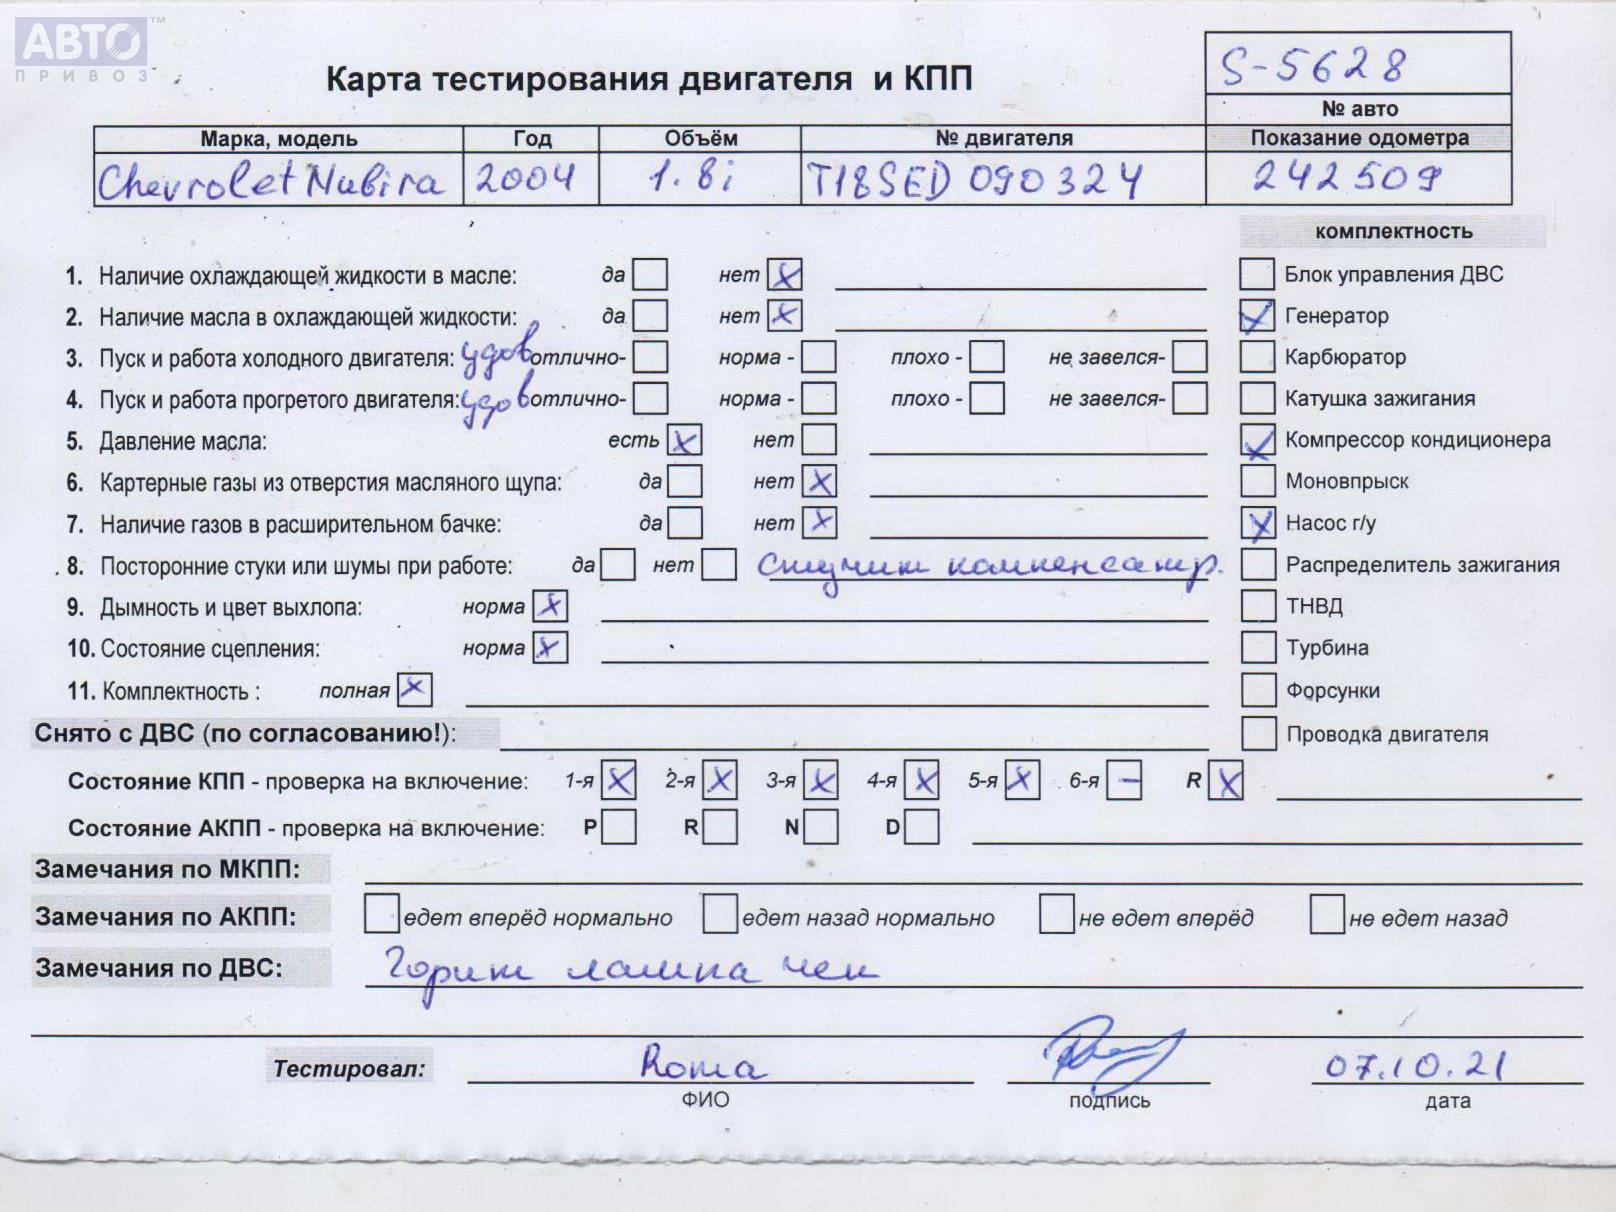 АВТО™
ПРИВОЗ
Карта тестирования двигателя и КПП
S-5628
№ авто
Марка, модель Год Объём № двигателя Показание одометра
Chevrolet Nubira 2004 1.8i T18SED 090324 242509
комплектность
1. Наличие охлаждающей жидкости в масле: да нет x Блок управления ДВС
2. Наличие масла в охлаждающей жидкости: да нет x Генератор x
3. Пуск и работа холодного двигателя: удов отлично- норма - плохо - не завелся- Карбюратор
4. Пуск и работа прогретого двигателя: удов отлично- норма - плохо - не завелся- Катушка зажигания
5. Давление масла: есть x нет Компрессор кондиционера x
6. Картерные газы из отверстия масляного щупа: да нет x Моновпрыск
7. Наличие газов в расширительном бачке: да нет x Насос г/у x
8. Посторонние стуки или шумы при работе: да нет Стучит компенсатр. Распределитель зажигания
9. Дымность и цвет выхлопа: норма x ТНВД
10. Состояние сцепления: норма x Турбина
11. Комплектность : полная x Форсунки
Снято с ДВС (по согласованию!): Проводка двигателя
Состояние КПП - проверка на включение: 1-я x 2-я x 3-я x 4-я x 5-я x 6-я – R x
Состояние АКПП - проверка на включение: P R N D
Замечания по МКПП:
Замечания по АКПП: едет вперёд нормально едет назад нормально не едет вперёд не едет назад
Замечания по ДВС: Горит лампа чек
Тестировал: Roma 07.10.21
ФИО подпись дата